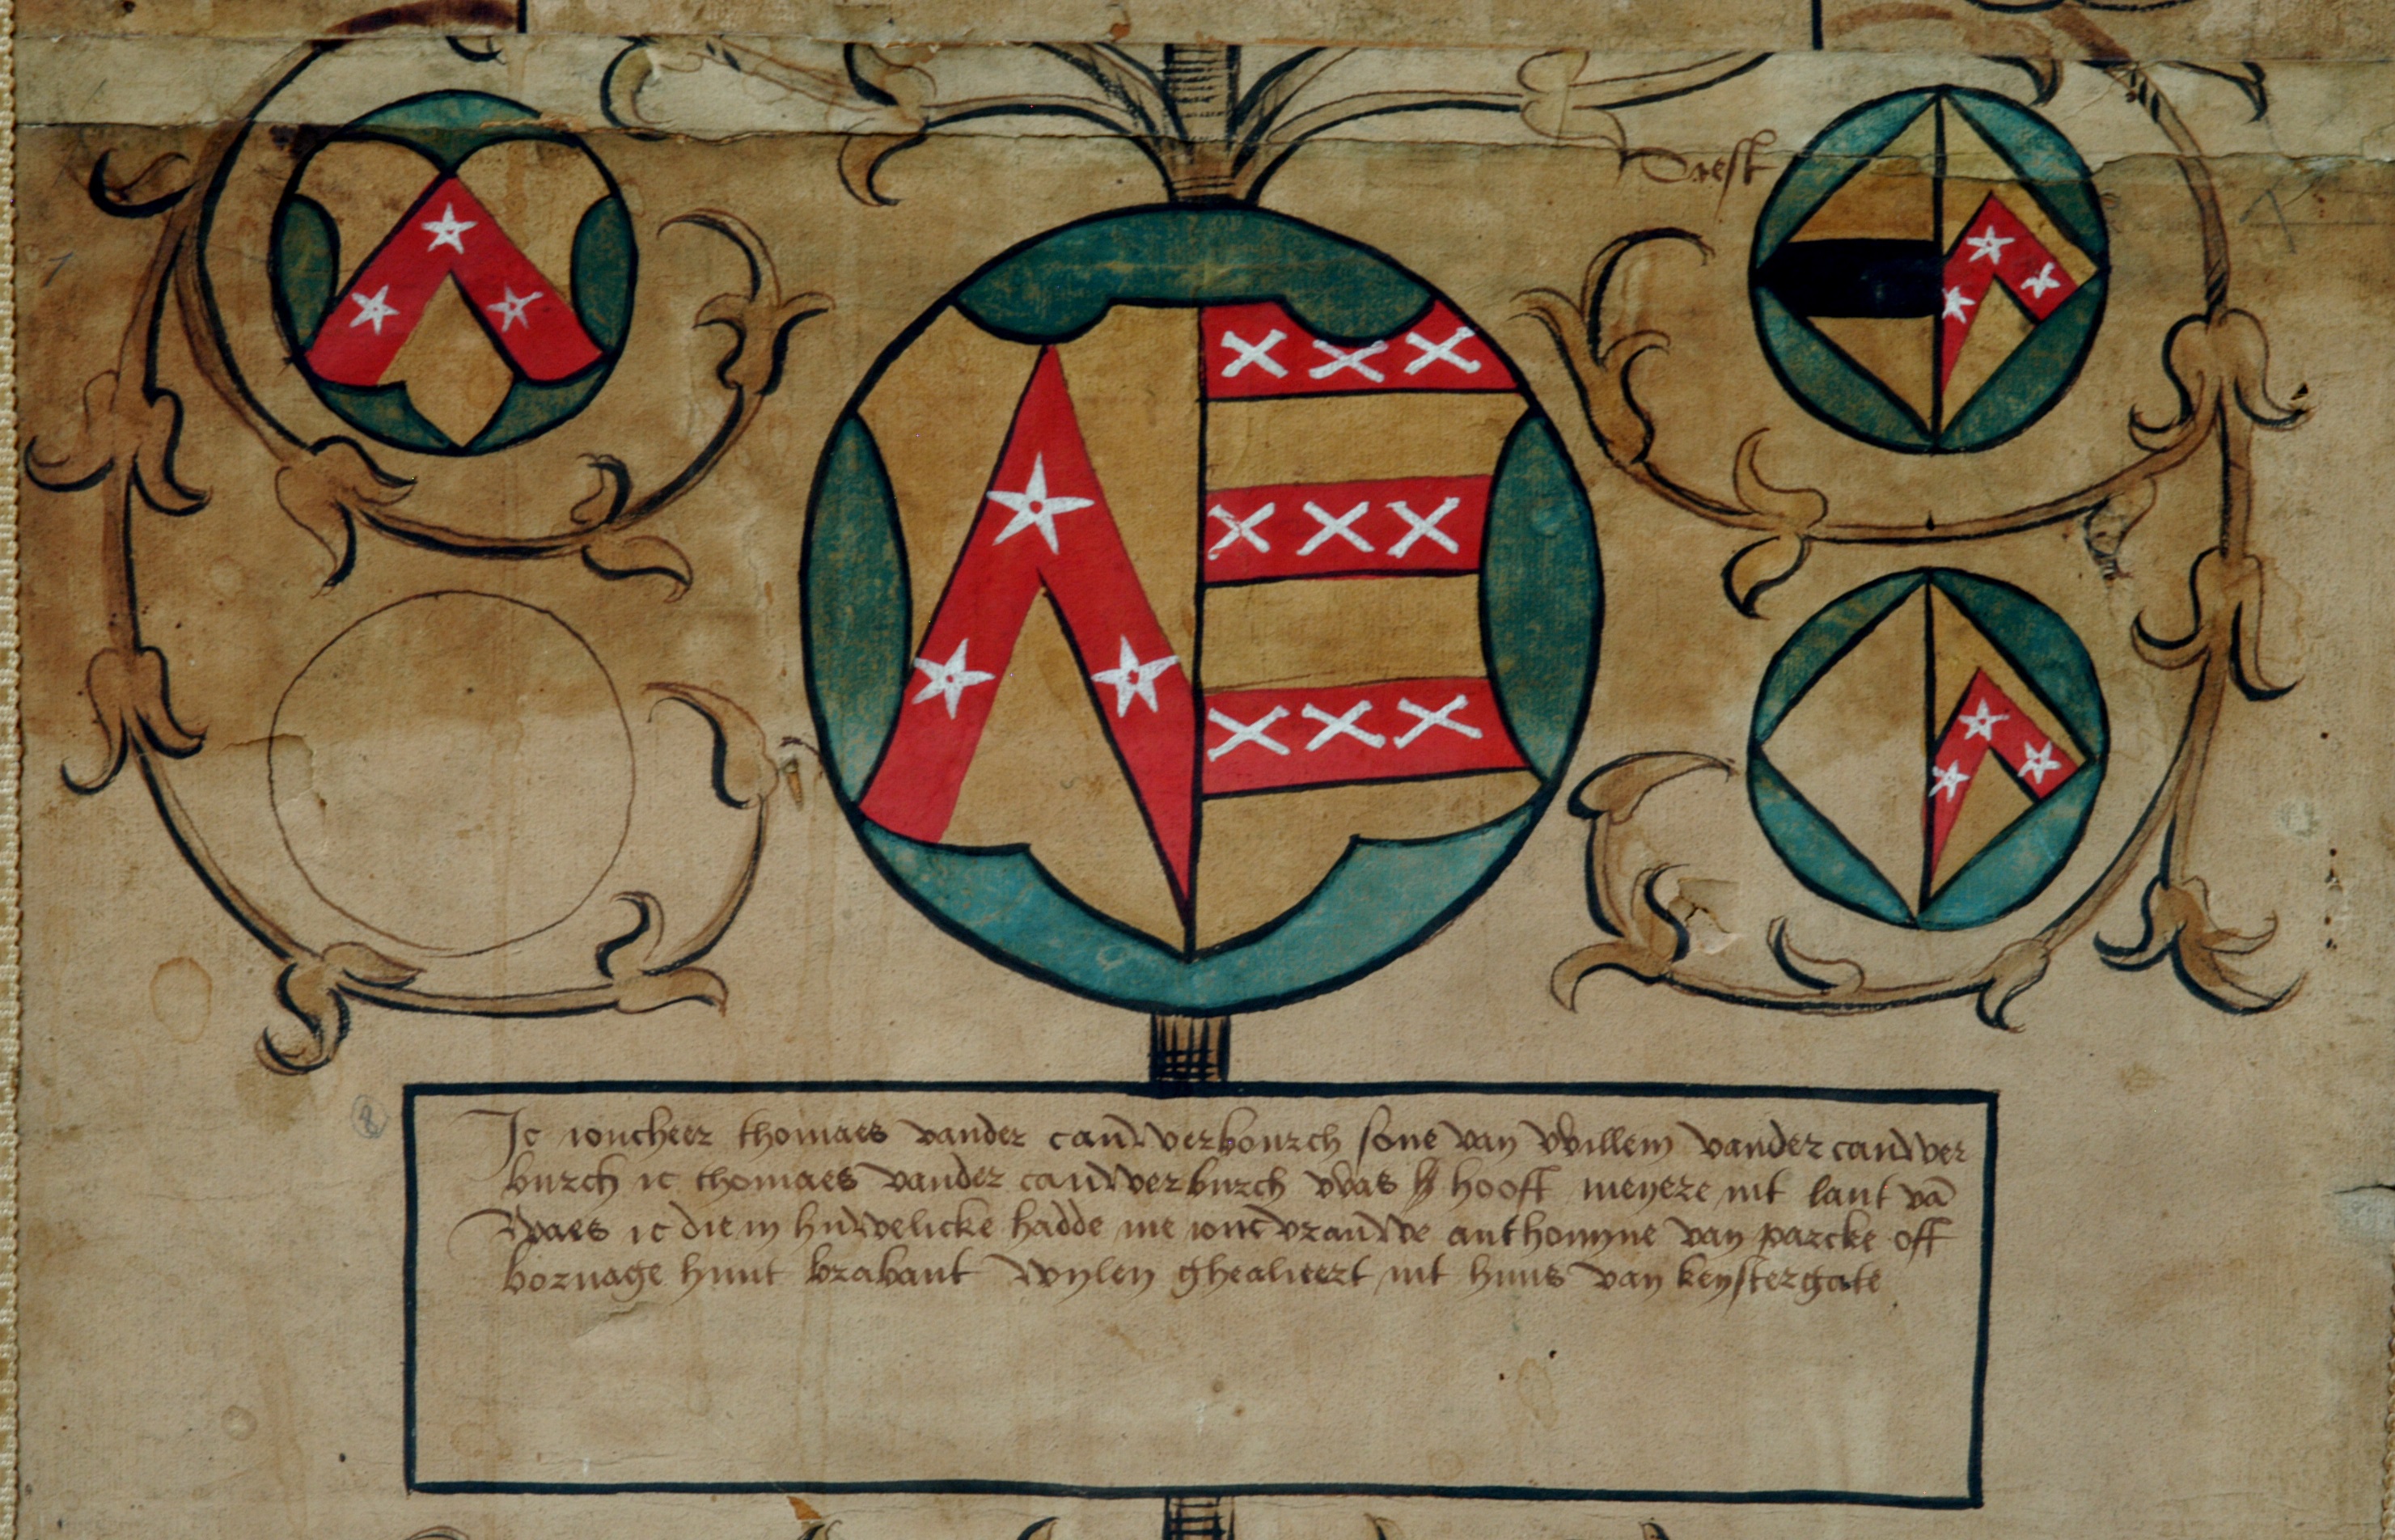 Drest
Ic ioncheer thomaes vander cauwerbourch sone van willem vander cauwer
burch ic thomaes vander cauwerburch was hooft meyere int lant vā
waes ic die in huwelicke hadde me ionc vrauwe anthonyne van parcke off
bornage huut brabant wylen ghealieert int huus van keystergate